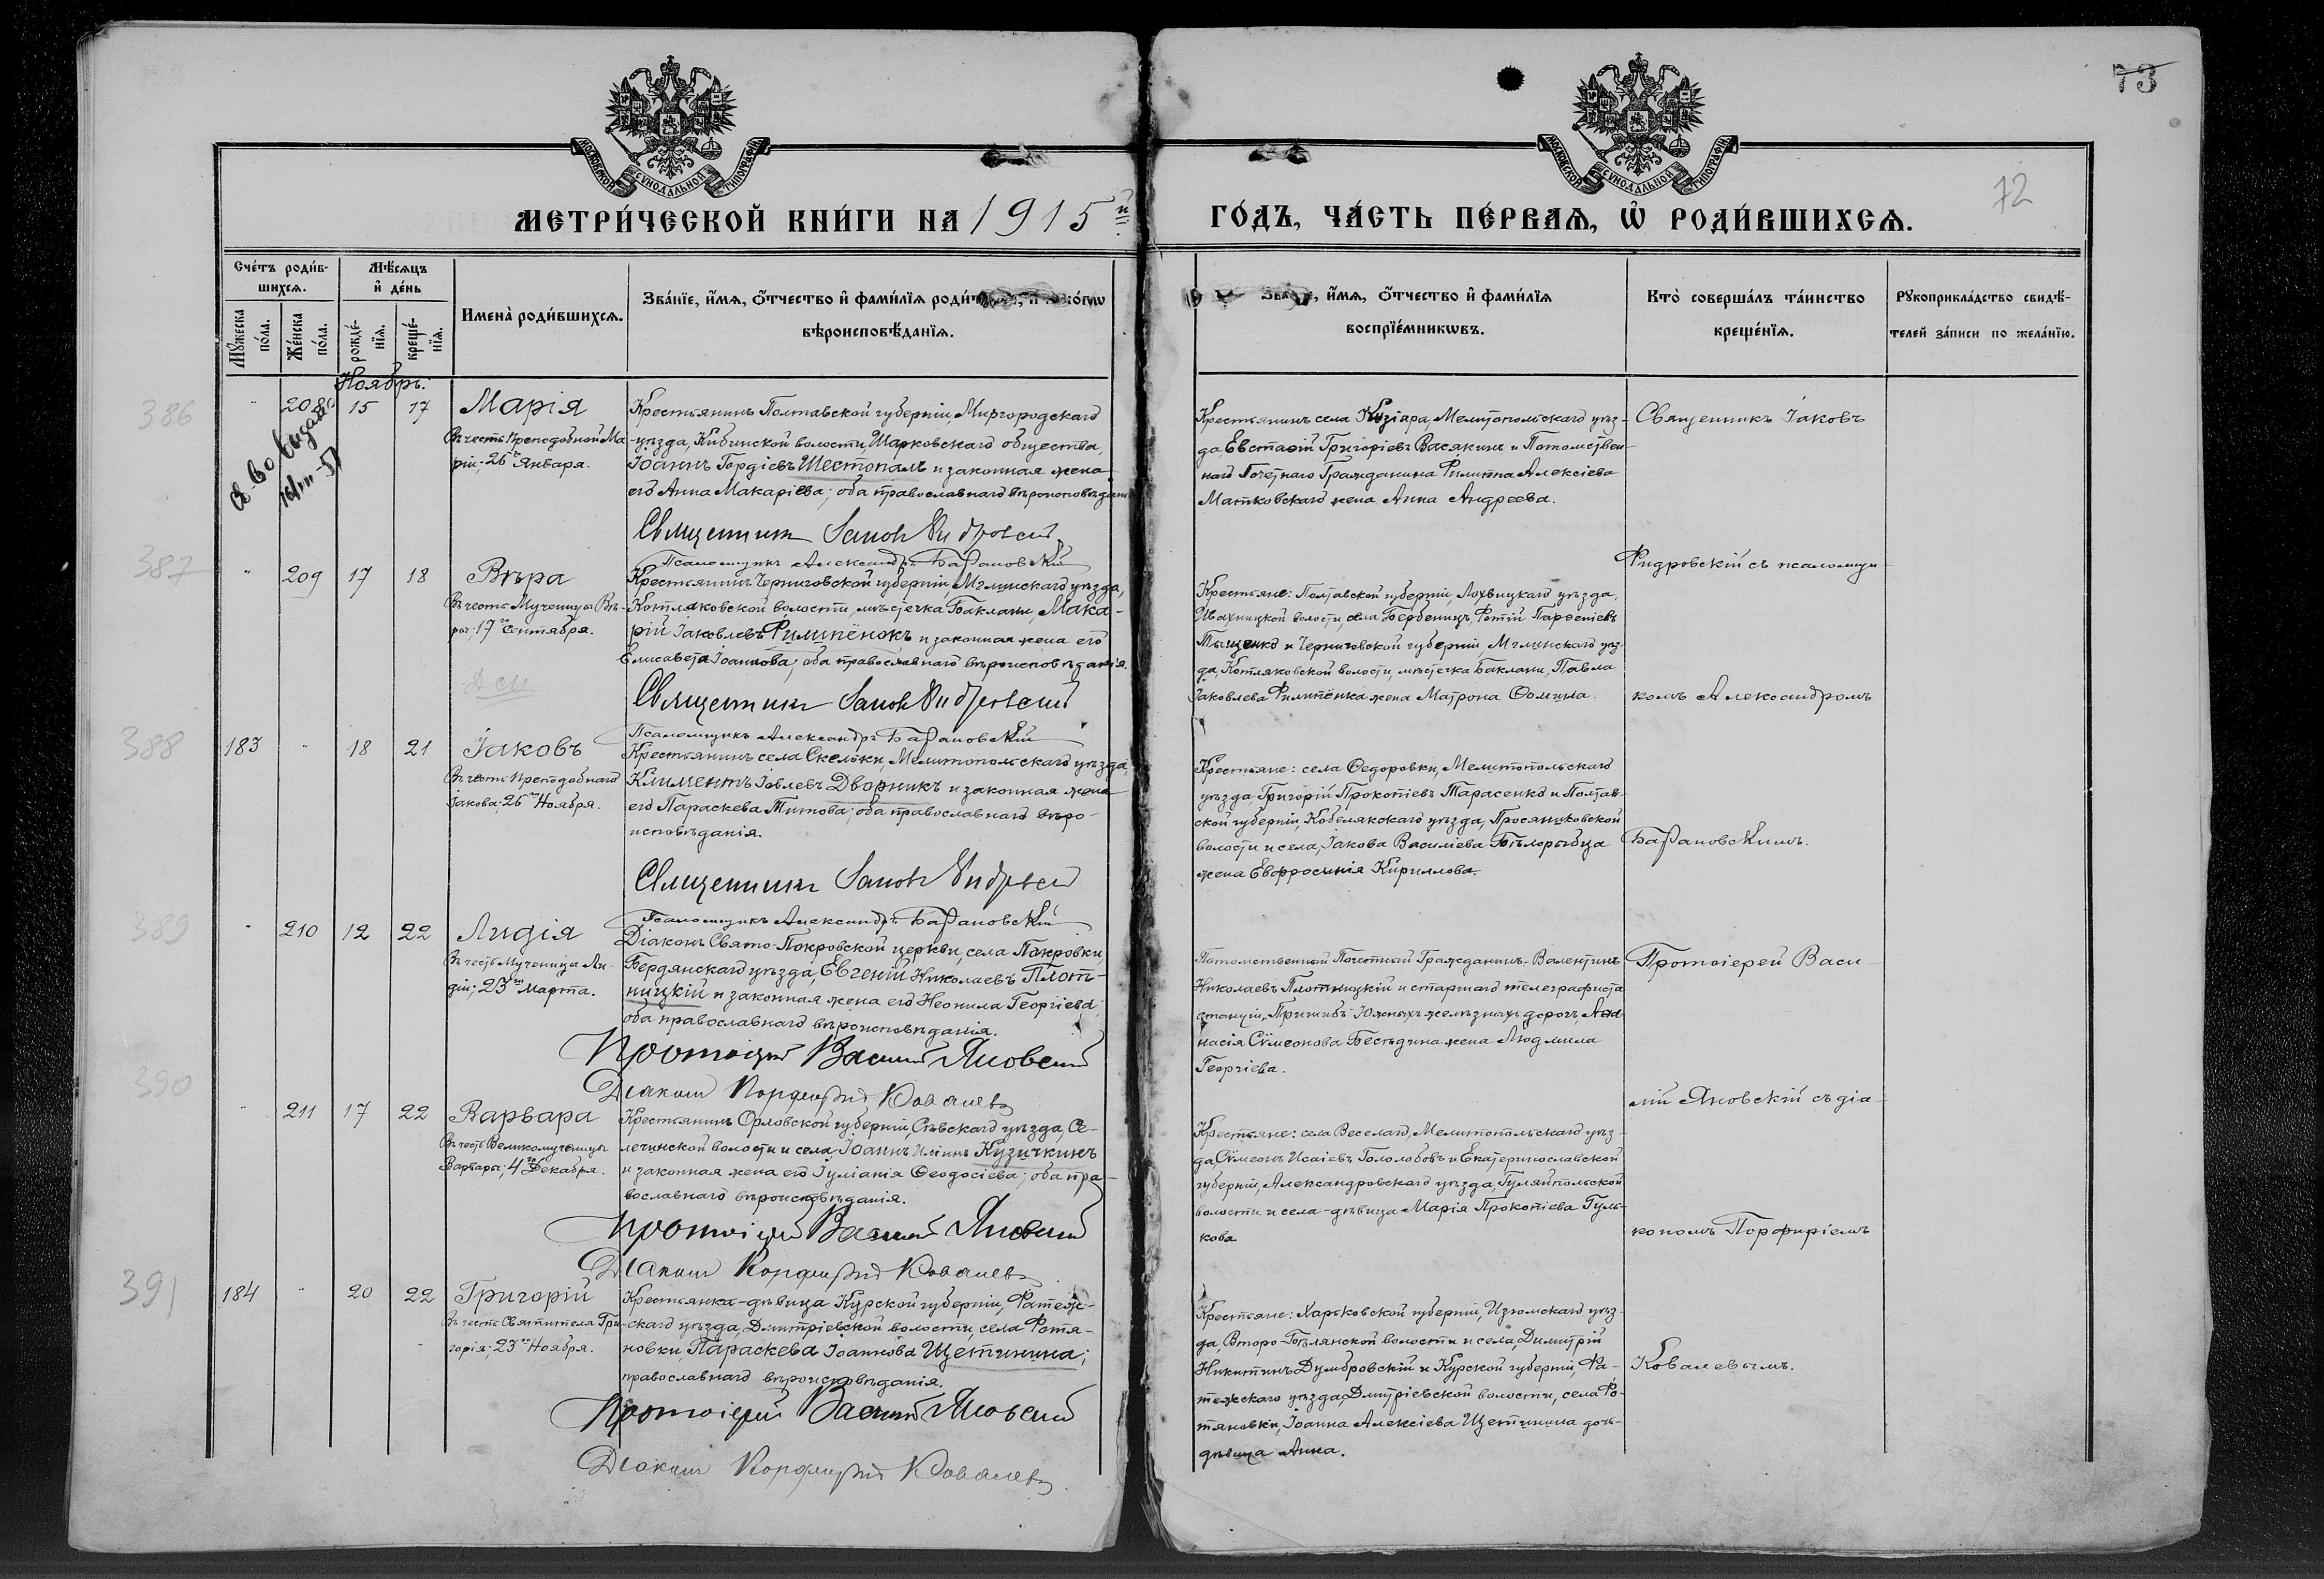 73
72
МОСКОВСКОЙ СѴНОДАЛЬНОЙ ТИПОГРАФІИ
МОСКОВСКОЙ СѴНОДАЛЬНОЙ ТИПОГРАФІИ
МЕТРИ́ЧЕСКОЙ КНИ́ГИ НА 1915й
ГО́ДЪ, ЧА́СТЬ ПЕ́РВАѦ, Ѡ҆ РОДИ́ВШИХСѦ.
Сче́тъ роди́в-
шихсѧ.
Мѣ́сѧцъ
и҆ де́нь
Мꙋ́жеска
по́ла.
Же́нска
по́ла.
рожде́-
нїѧ.
креще́-
нїѧ.
Имена̀ роди́вшихсѧ.
Зва́нїе, и҆́мѧ, ѻ҆́тчество и҆ фами́лїѧ
вѣроисповѣ́данїѧ.
и҆́мѧ, ѻ҆́тчество и҆ фами́лїѧ
воспрїе́мникѡвъ.
Кто̀ соверша́лъ та́инство
креще́нїѧ.
Рꙋкоприкла́дство свидѣ́-
телей за́писи по жела́нїю.
Ноябрь:
386
208
15
17
Марія
Въ честь Преподобной Ма-
ріи; 26го Января.
Св-во выдано
Крестьянинъ Полтавской губерніи, Миргородскаго
уѣзда, Кибинской волости, Шарковскаго общества,
Іоаннъ Гордіевъ Шестопалъ и законная жена
его Анна Макаріева; оба православнаго вѣроисповѣданія
Священникъ Іаковъ Фидровскій
Псаломщикъ Александръ Барановскій
Крестьянинъ села Мелитопольскаго уѣз-
да, Евстафій Григоріевъ Васякинъ и Потомствен-
наго Почетнаго Гражданина Филиппа Алексіева
Матковскаго жена Анна Андреева.
Священникъ Іаковъ
387
209
17
18
Вѣра
Въ честь Мученицы Вѣ-
ры; 17го Сентября.
Крестьянинъ Черниговской губерніи, Мглинскаго уѣзда,
Котляковской волости, мѣстечка Баклани, Мака-
рій Іаковлевъ Филипёнокъ и законная жена его
Елисавета Іоаннова; оба православнаго вѣроисповѣданія.
Священникъ Іаковъ Фидровскій
Псаломщикъ Александръ Барановскій
Крестьяне: Полтавской губерніи, Лохвицкаго уѣзда,
Ивахницкой волости, села Бербеницъ, Фотій Парѳеніевъ
Тыщенко и Черниговской губерніи, Мглинскаго уѣз-
да, Котляковской волости, мѣстечка Баклани, Павла
Іаковлева Филипёнка жена Матрона Ѳомина.
Фидровскій съ псаломщи-
комъ Александромъ
388
183
18
21
Іаковъ
Въ честь Преподобнаго
Іакова; 26го Ноября.
Крестьянинъ села Скельки, Мелитопольскаго уѣзда,
Климентъ Іовлевъ Дворникъ и законная жена
его Параскева Титова; оба православнаго вѣро-
исповѣданія.
Священникъ Іаковъ Фидровскій
Псаломщикъ Александръ Барановскій
Крестьяне: села Ѳедоровки, Мелитопольскаго
уѣзда, Григорій Прокопіевъ Тарасенко и Полтав-
ской губерніи, Кобелякскаго уѣзда, Просяниковской
волости и села, Іакова Василіева Бѣлорыбца
жена Евфросинія Кириллова.
Барановскимъ.
389
210
12
22
Лидія
Въ честь Мученицы Ли-
діи; 23го Марта.
Діаконъ Свято-Покровской церкви, села Покровки,
Бердянскаго уѣзда, Евгеній Николаевъ Плот-
ницкій и законная жена его Неонила Георгіева;
оба православнаго вѣроисповѣданія.
Протоіерей Василій Яновскій
Діаконъ Порфирій Ковалевъ
Потомственный Почотный Гражданинъ-Валентинъ
Николаевъ Плотницкій и старшаго телеграфиста
станціи „Пришибъ" Южныхъ желѣзныхъ дорогъ,
насія Сѵмеонова Бесѣдина жена Людмила
Георгіева.
Протоіерей Васи-
лій Яновскій съ діа-
390
211
17
22
Варвара
Въ честь Великомученицы
Варвары; 4го Декабря.
Крестьянинъ Орловской губерніи, Сѣвскаго уѣзда, Се-
лечинской волости и села, Іоаннъ Иліинъ Кузичкинъ
и законная жена его Іуліанія Ѳеодосіева; оба пра-
вославнаго вѣроисповѣданія.
Протоіерей Василій Яновскій
Діаконъ Порфирій Ковалевъ
Крестьяне: села Веселаго, Мелитопольскаго уѣз-
да, Сѵмеонъ Исаіевъ Гололобовъ и Екатеринославской
губерніи, Александровскаго уѣзда, Гуляйпольской
волости и села-дѣвица Марія Прокопіева Гуль-
кова
кономъ Порфиріемъ
391
184
20
22
Григорій
Въ честь Святителя Гри-
горія; 23го Ноября.
Крестьянка-дѣвица Курской губерніи, Фатеж-
скаго уѣзда, Дмитріевской волости, села Фотя-
новки, Параскева Іоаннова Щетинина;
православнаго вѣроисповѣданія.
Протоіерей Василій Яновскій
Діаконъ Порфирій Ковалевъ
Крестьяне: Харьковской губерніи, Изюмскаго уѣз-
да, Второ-Бѣлянской волости и села, Димитрій
Никитинъ Думбровскій и Курской губерніи, Фа-
тежскаго уѣзда, Дмитріевской волости, села Фо-
тяновки, Іоанна Алексіева Щетинина дочь-
дѣвица Анна.
Ковалевымъ.